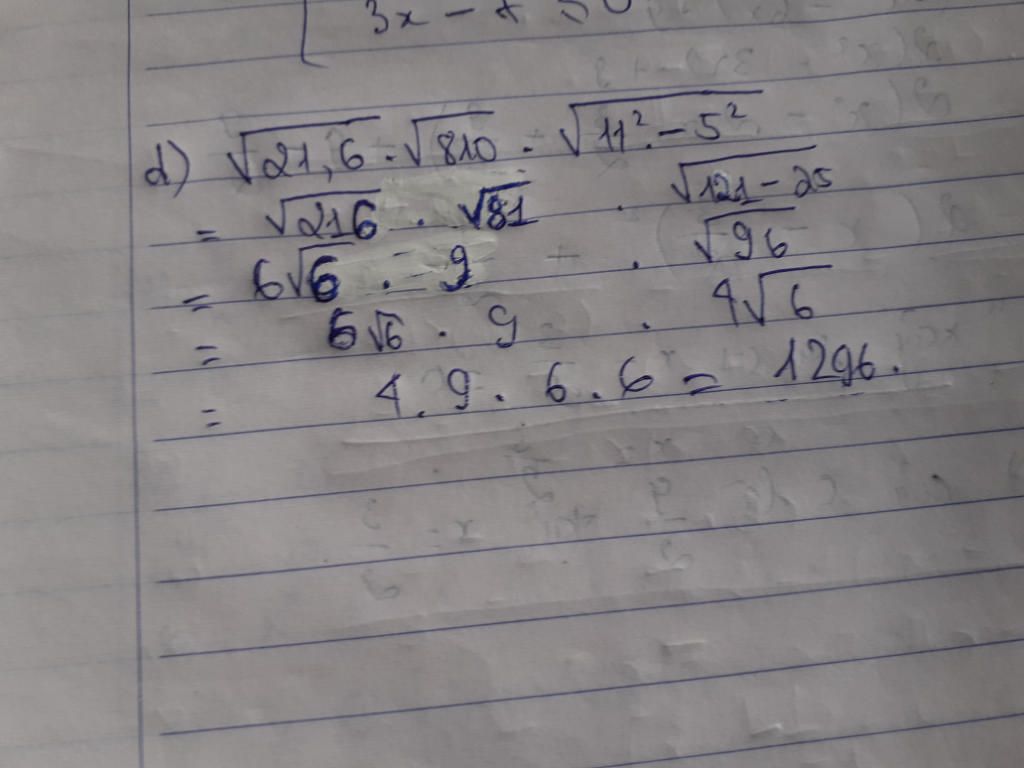 3x -
d) √21,6 . √810 . √11² - 5²
= √216 . √81 . √121 - 25
= 6√6 . 9 . √96
= 6√6 . 9 . 4√6
= 4 . 9 . 6 . 6 = 1296.